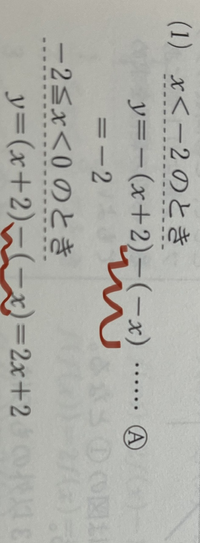 (1) x<-2のとき
y=-(x+2)-(-x) …… Ⓐ
=-2
-2≦x<0のとき
y=(x+2)-(-x)=2x+2